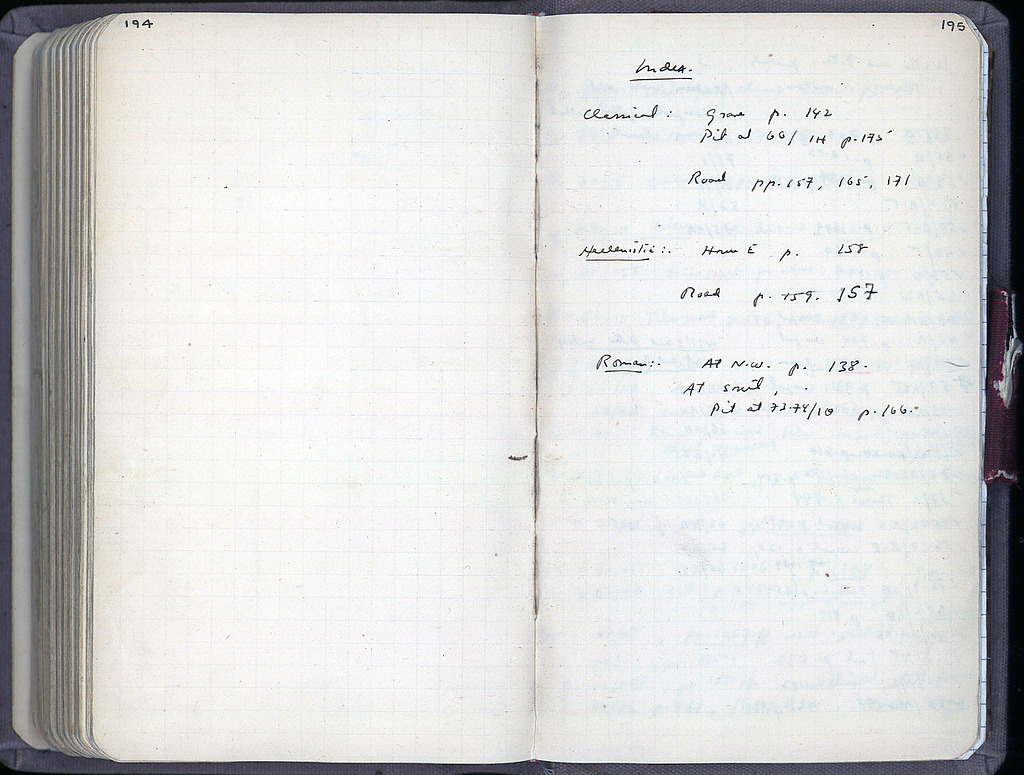 194
195
Index.
Classical: Grave p. 142
Pit at 66/ΙΗ p. 175
Road pp. 157, 165, 171
Hellenistic:. House E p. 158
Road p. 159. 157
Roman:. At N.W. p. 138.
At south,
Pit at 73-74/10 p. 166.